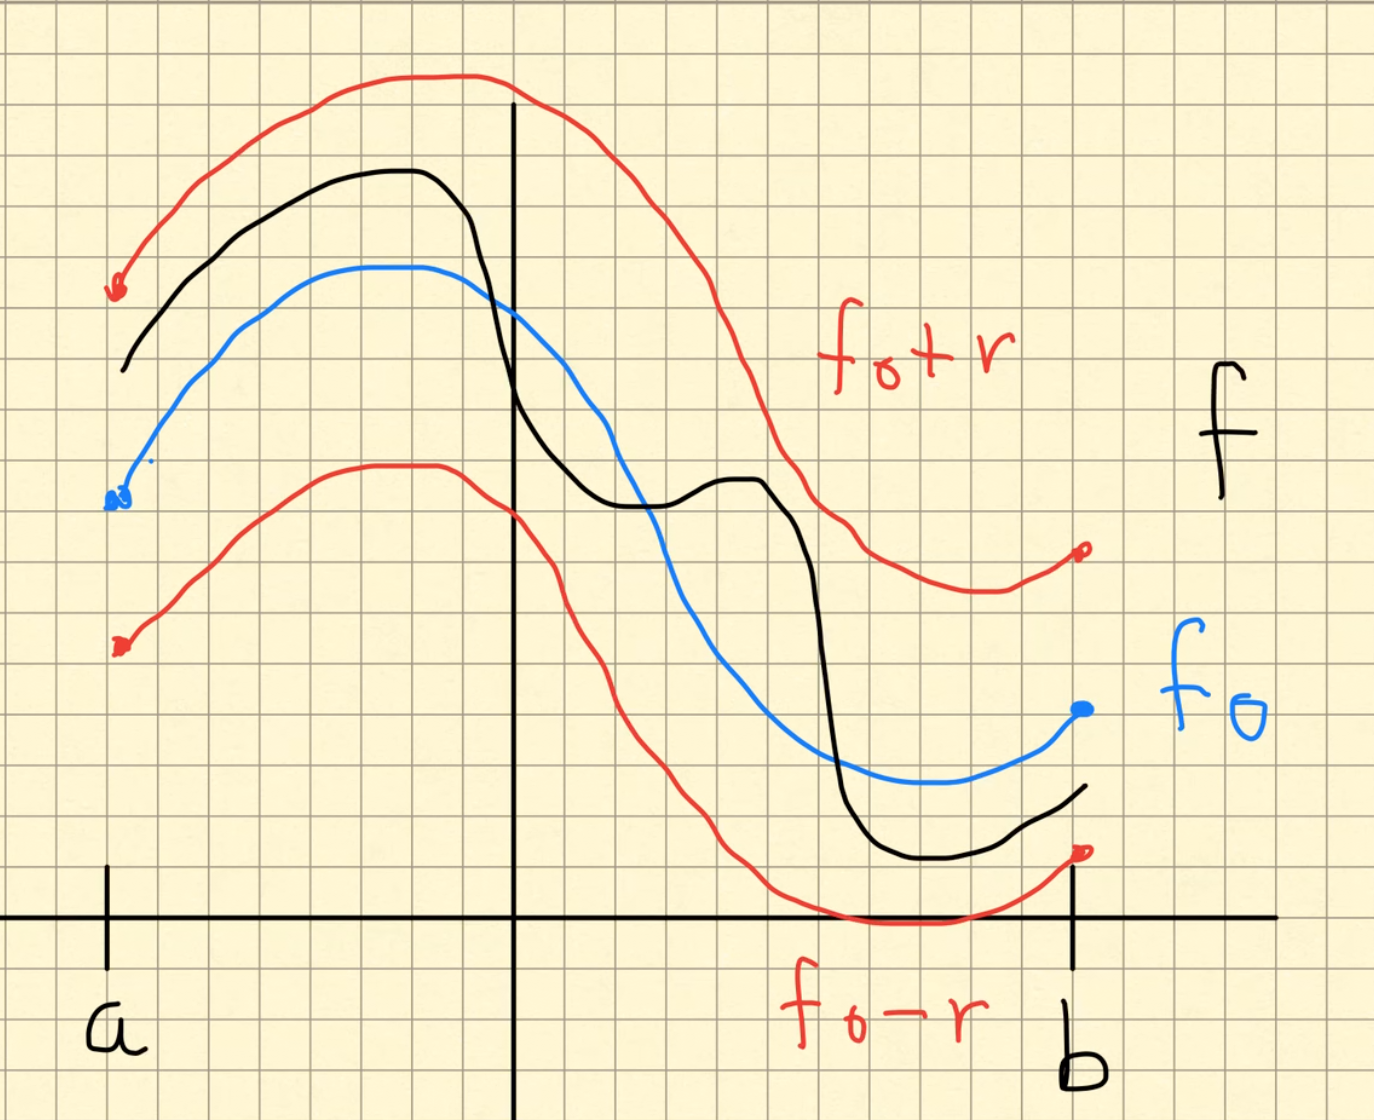 f₀+r
f
f₀
f₀-r
a
b